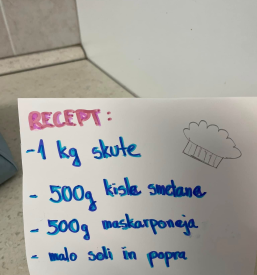 RECEPT:
-1 kg skute
- 500g kisle smetane
- 500g maskarponeja
- malo soli in popra